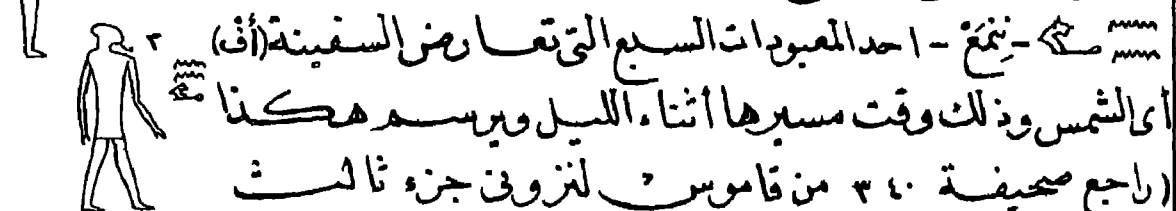 - نِنْمَعْ - احد المعبودات السبع التى تعارض السفينة (أف)
أى الشمس وذلك وقت مسيرها أثناء الليل ويرسم هكذا
(راجع صحيفة ٣٤٠ من قاموس لنزونى جزء ثالث